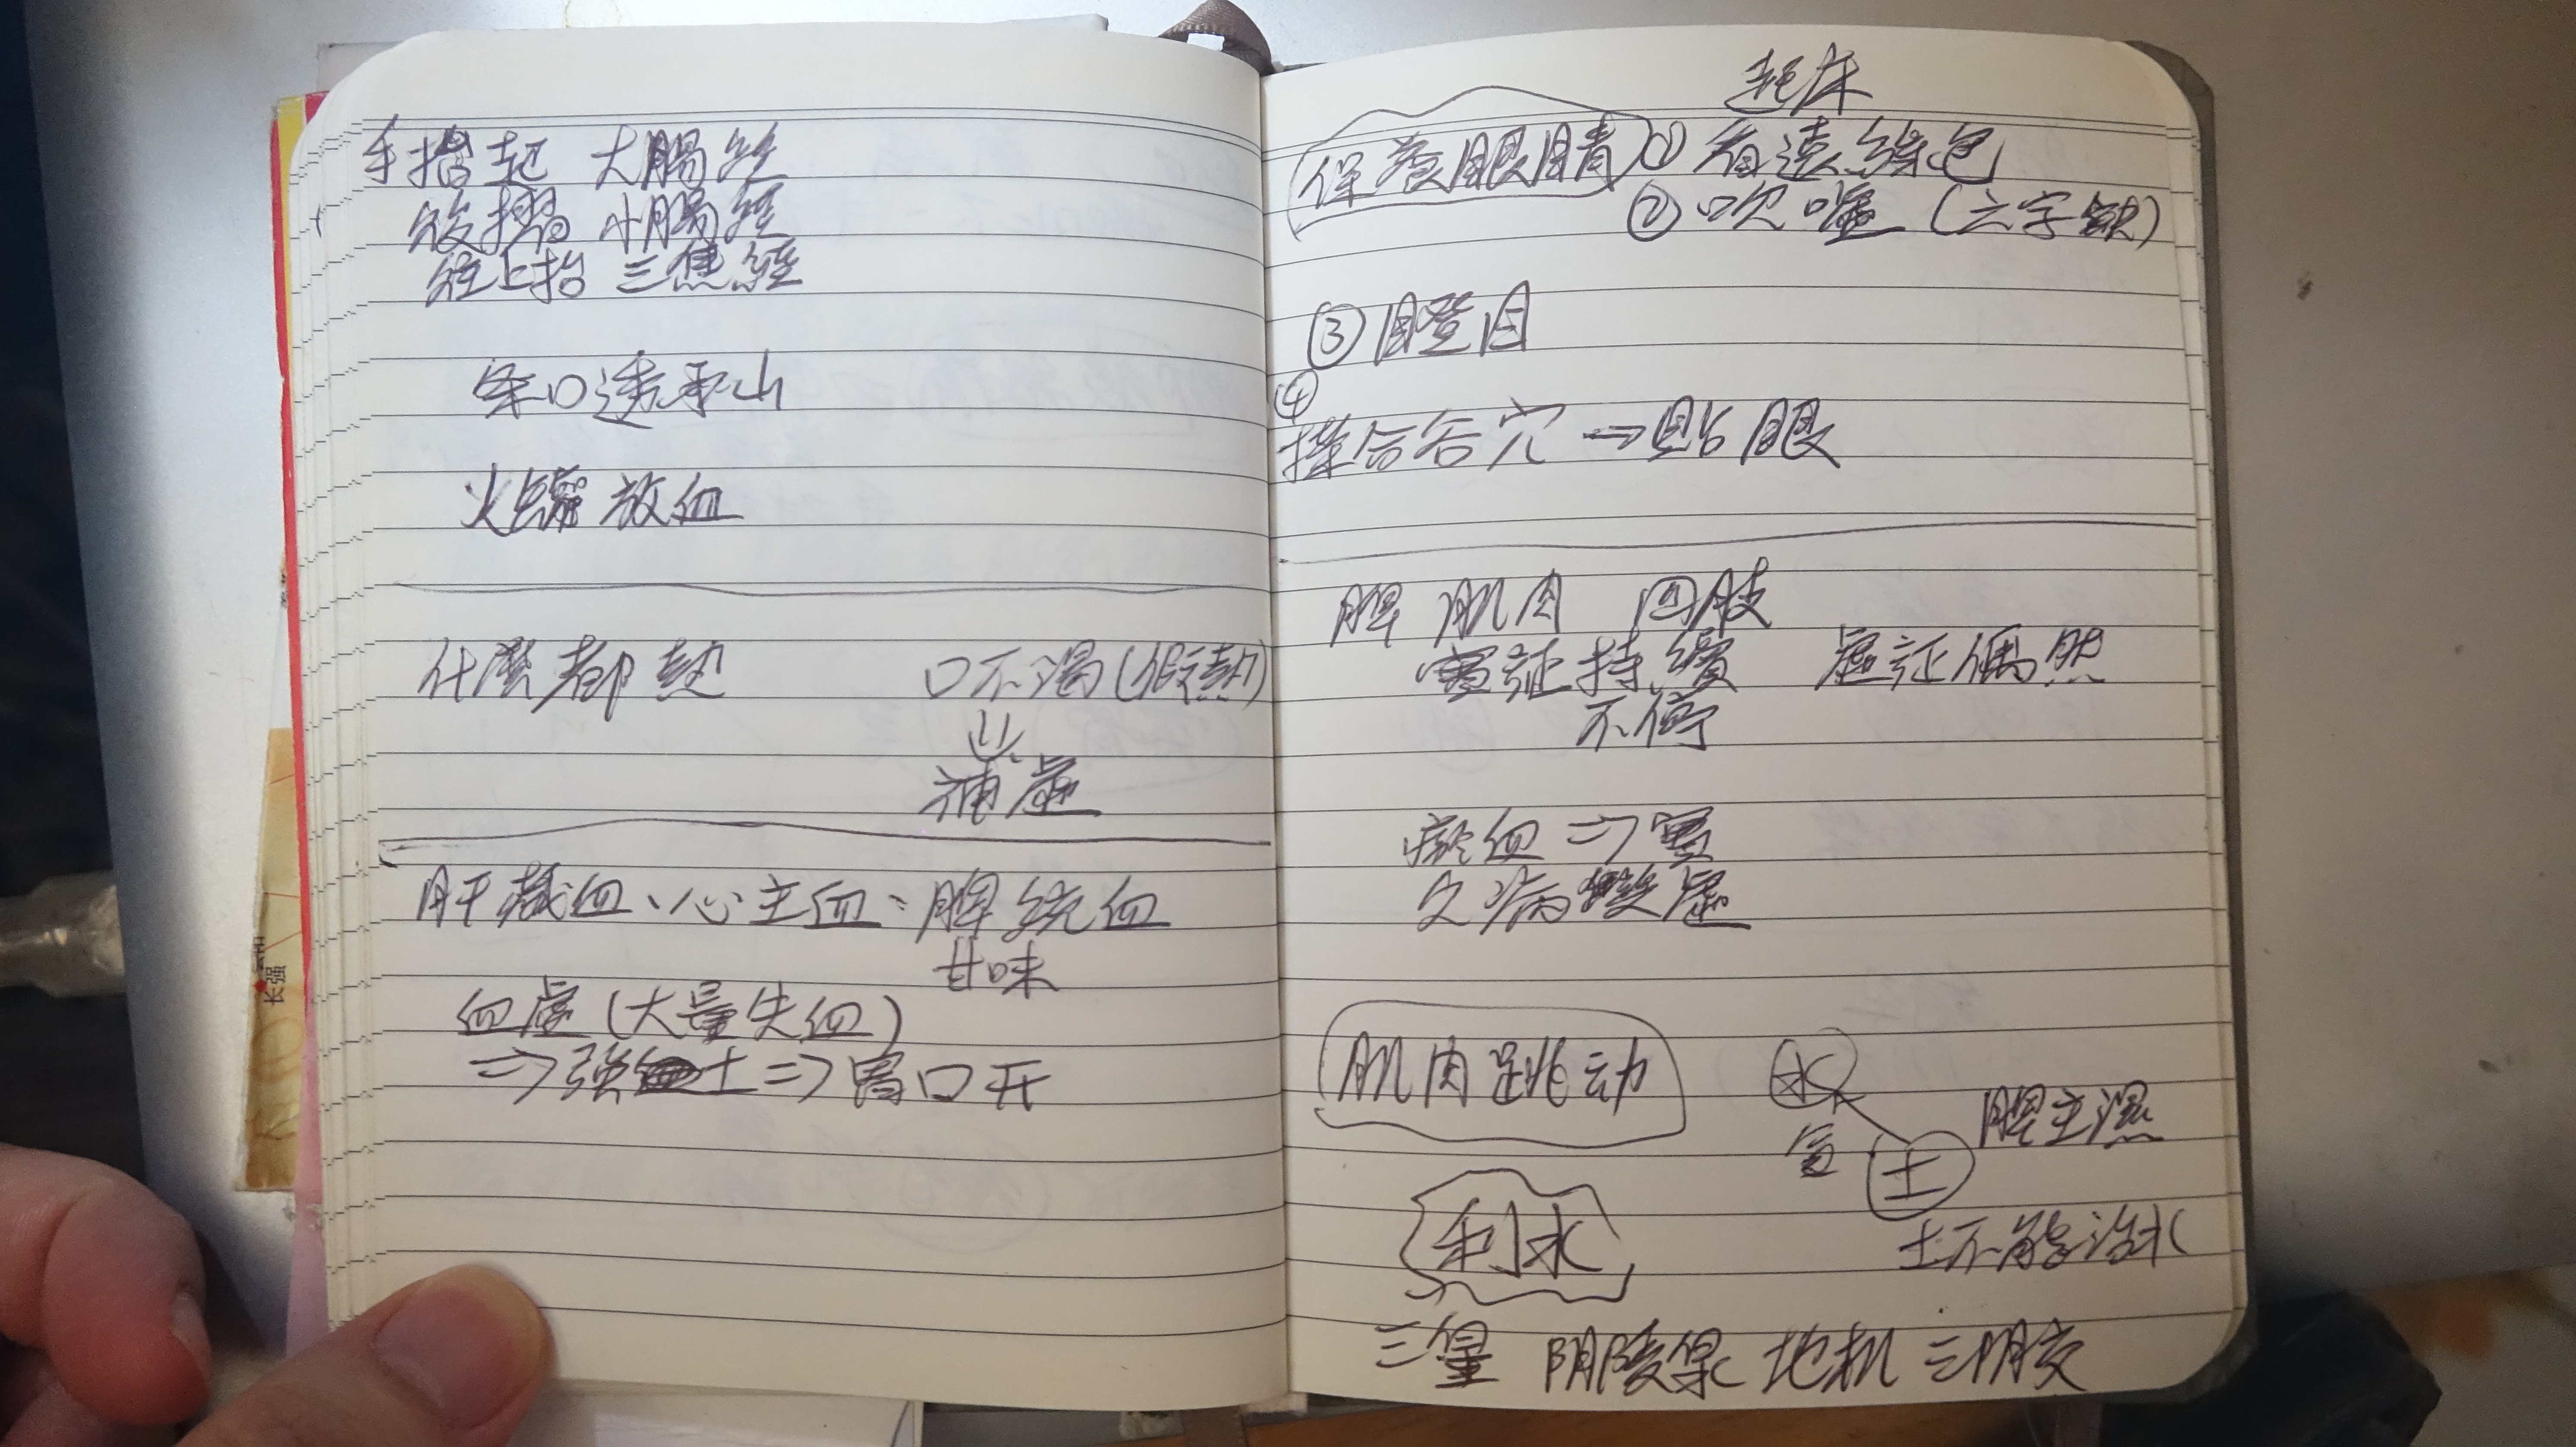 手抬起 大腸經
後摺 小腸經
往上抬 三焦經
条口透承山
火罐放血
什麼都熱 口不渴(假熱)
補虛
肝藏血、心主血、脾統血
甘味
血虛(大量失血)
⇒強土⇒胃口開
长强
起床
保養眼睛 ① 看遠綠色
② 吹噓(六字訣)
③ 瞪目
④
搓合谷穴→貼眼
脾 肌肉 四肢
實証持續 虛証偶然
不停
瘀血⇒實
久病 虛
肌肉跳动
水
土
脾主濕
利水
土不能治水
三皇 阴陵泉 地机 三阴交